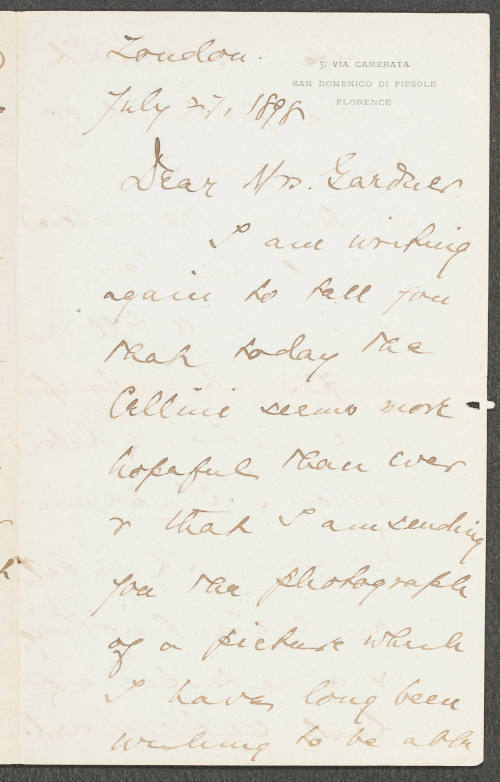 London.
5, VIA CAMERATA
SAN DOMENICO DI FIESOLE
FLORENCE
July 27, 1898
Dear Mrs. Gardner
I am writing
again to tell you
that today the
Cellini seems more
hopeful than ever
& that I am sending
you the photograph
of a picture which
I have long been
wishing to be able